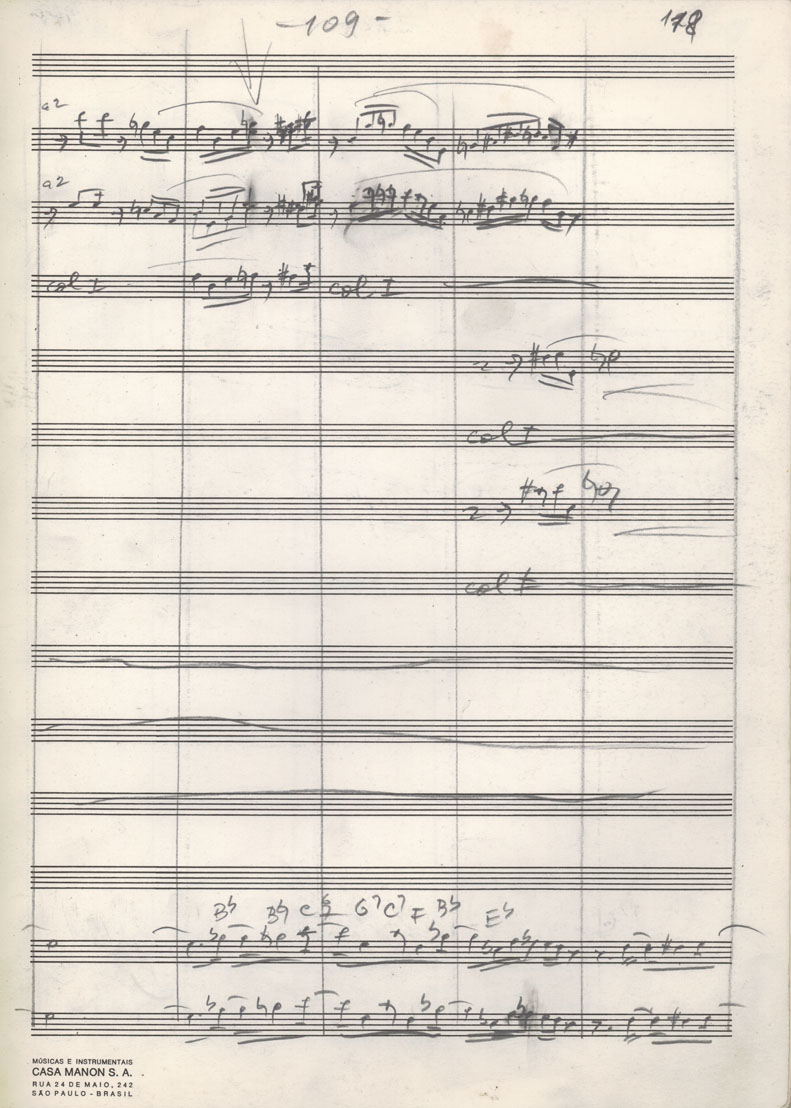 -109-
178
a2
a2
col I
col I
col I
col I
B♭ B♮ C G7 C7 F B♭ E♭
MÚSICAS E INSTRUMENTAIS
CASA MANON S. A.
RUA 24 DE MAIO, 242
SÃO PAULO - BRASIL